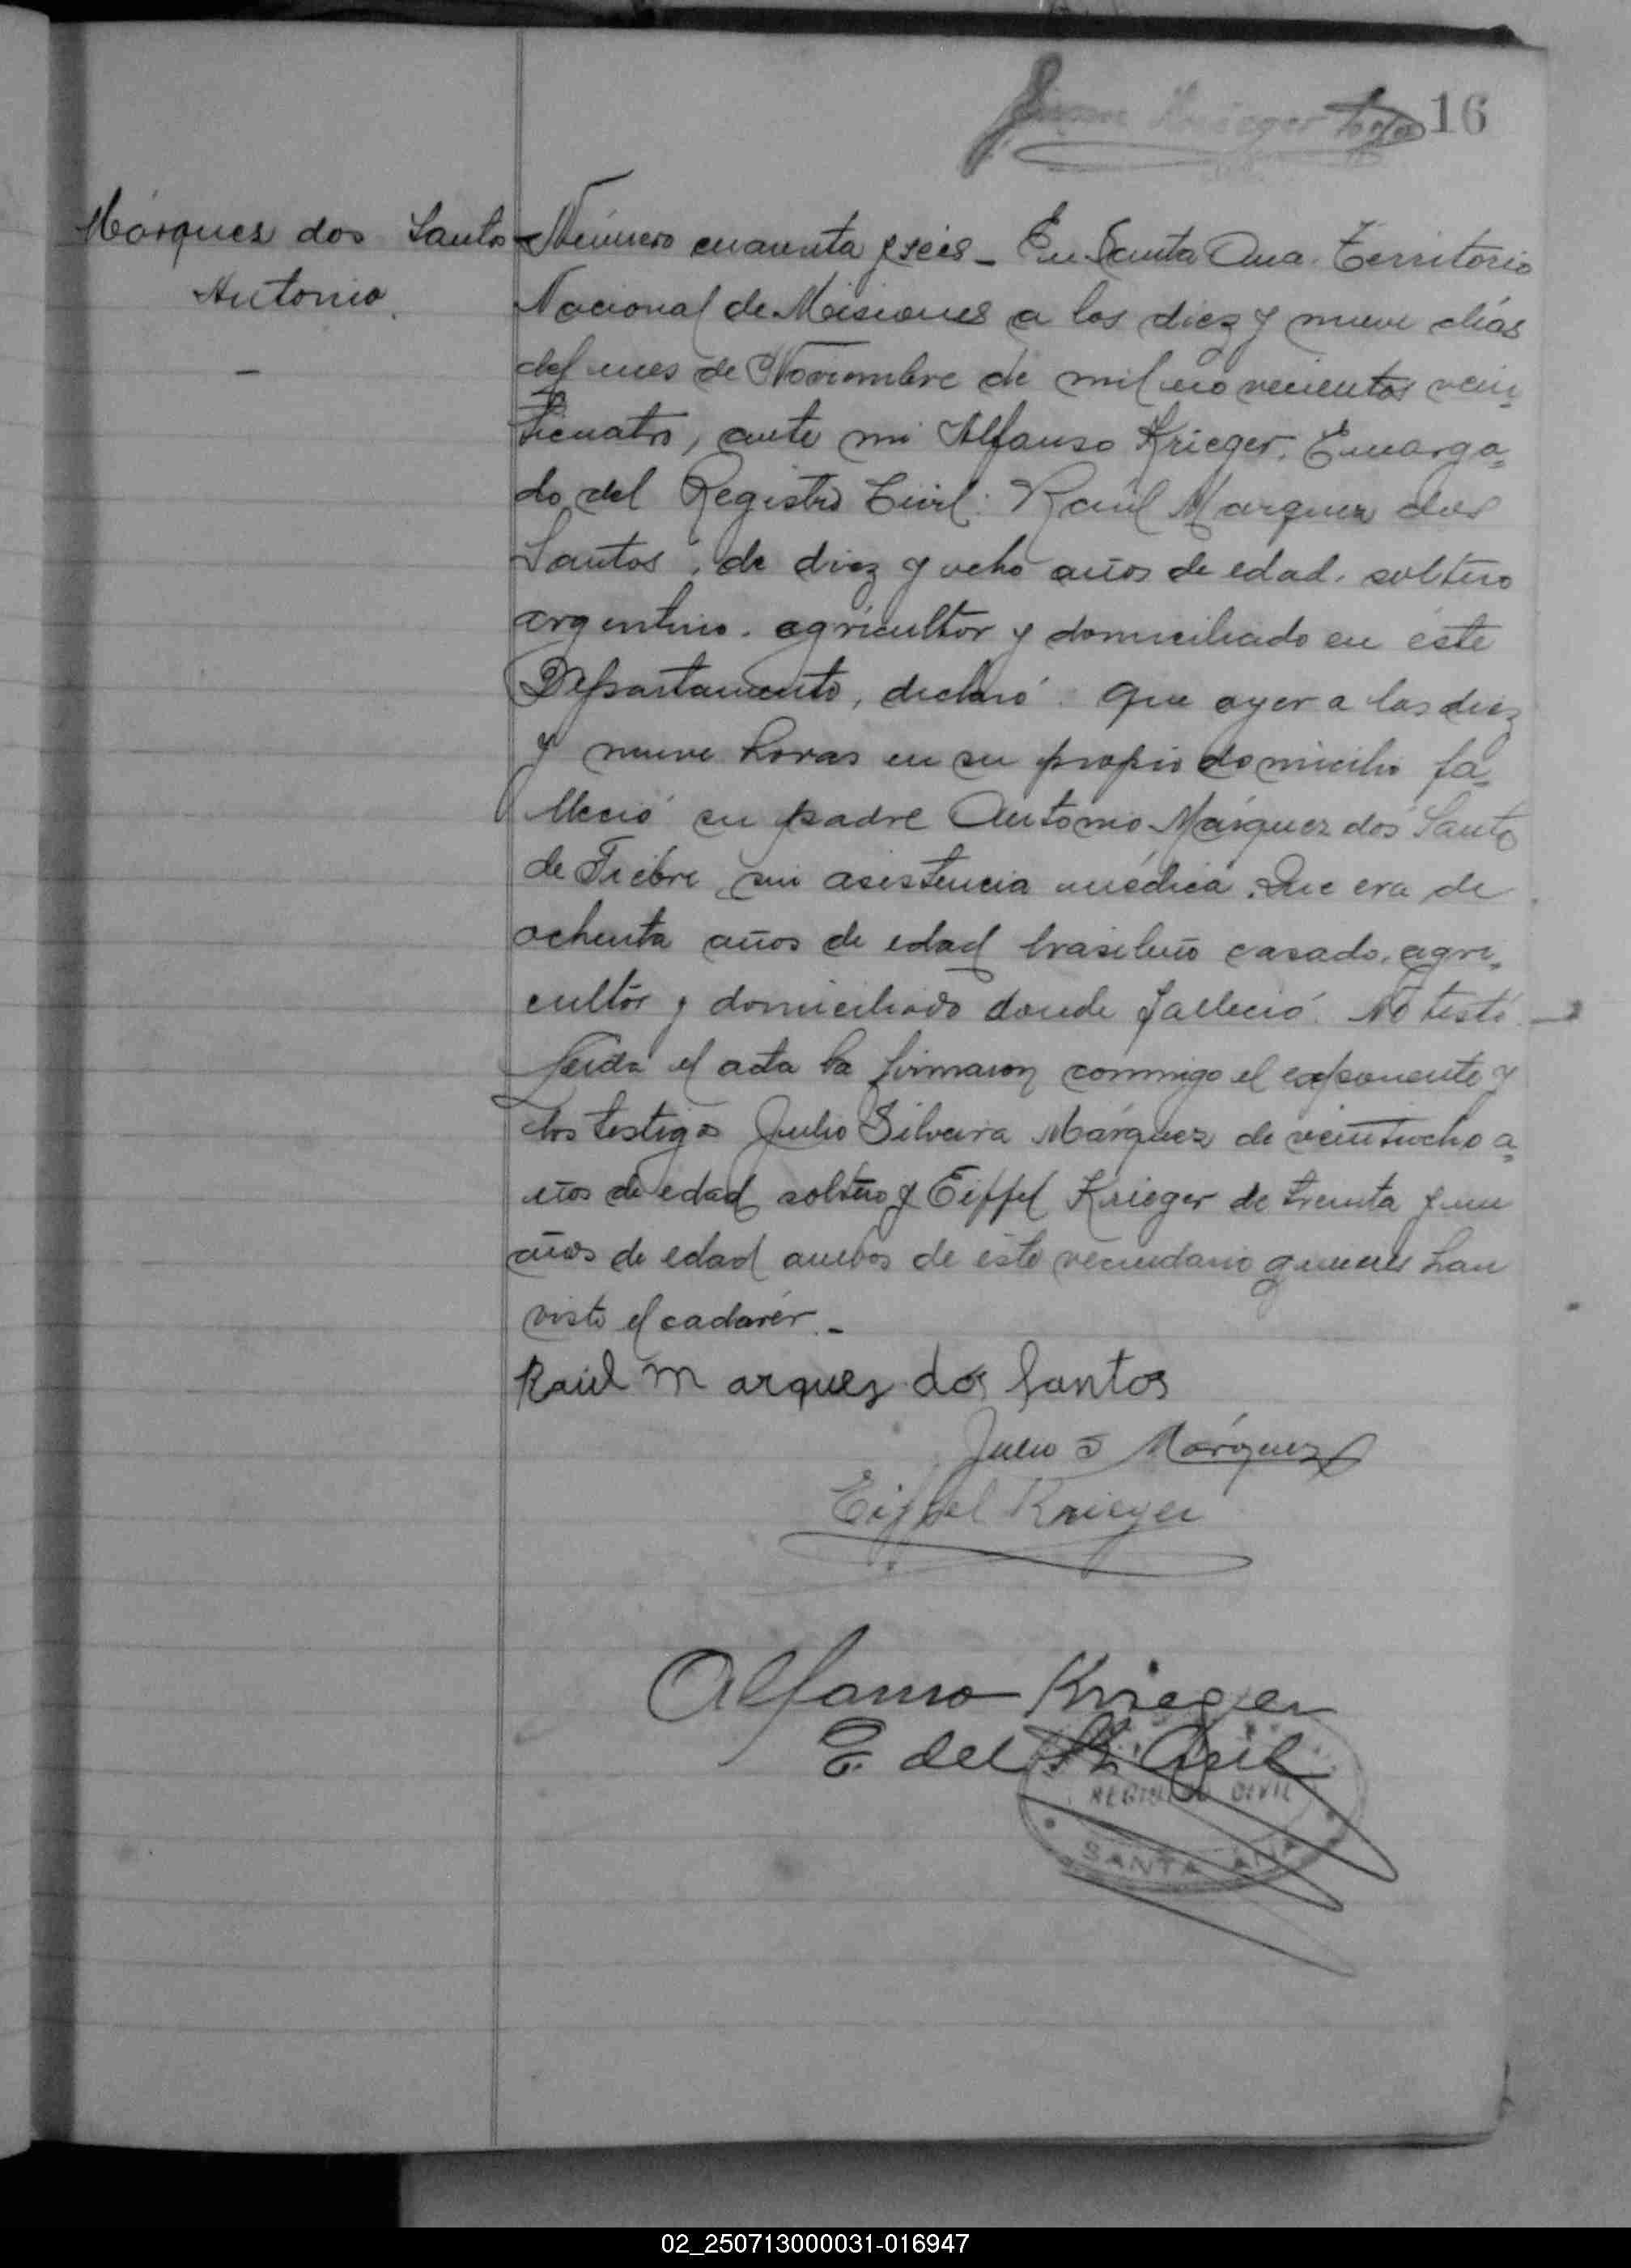 Krieger 16
Márquez dos Santos
Antonio.
Número cuarenta y seis_ En Santa Ana. Territorio
Nacional de Misiones a los diez y nueve días
del mes de Noviembre de mil novecientos vein
ticuatro, ante mi Alfonso Krieger. Encarga=
do del Registro Civil: Raúl Marquez dos
Santos, de diez y ocho años de edad, soltero
argentino. agricultor y domiciliado en éste
Departamento, declaró: Que ayer a las diez
y nueve horas en su propio domicilio fa=
lleció su padre Antonio Márquez dos Santos
de Fiebre sin asistencia médica. Que era de
ochenta años de edad brasileño casado, agri=
cultor y domiciliado donde falleció. No testó.
Leida el acta la firmaron conmigo el exponente y
los testigos Julio Silveira Márquez de veintiocho a=
ños de edad soltero y Eiffel Krieger de treinta y un
años de edad ambos de éste vecindario quienes han
visto el cadáver._
Raúl Marquez dos Santos
Julio S Márquez
Eiffel Krieger
Alfonso Krieger
E. del R. Civil
REGISTRO CIVIL
SANTA ANA
02_250713000031-016947